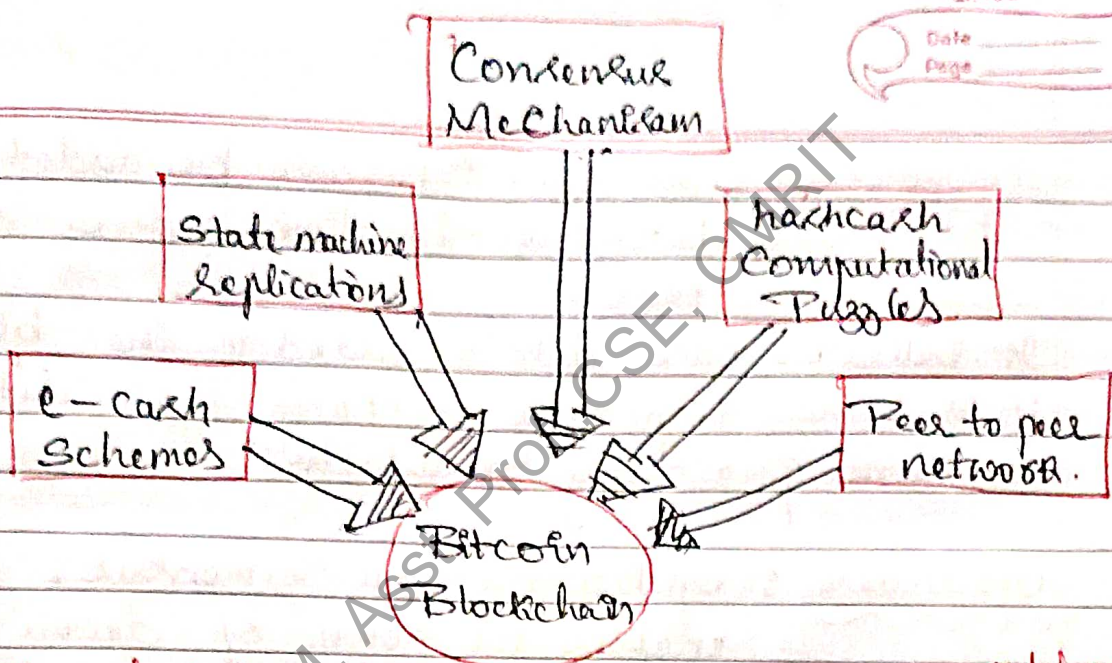 Date
Page
Consensus
Mechanism
State machine
replications
hashcash
Computational
Puzzles.
e-cash
Schemes
Peer to peer
network.
Bitcoin
Blockchain
Asst Prof, CSE, CMRIT